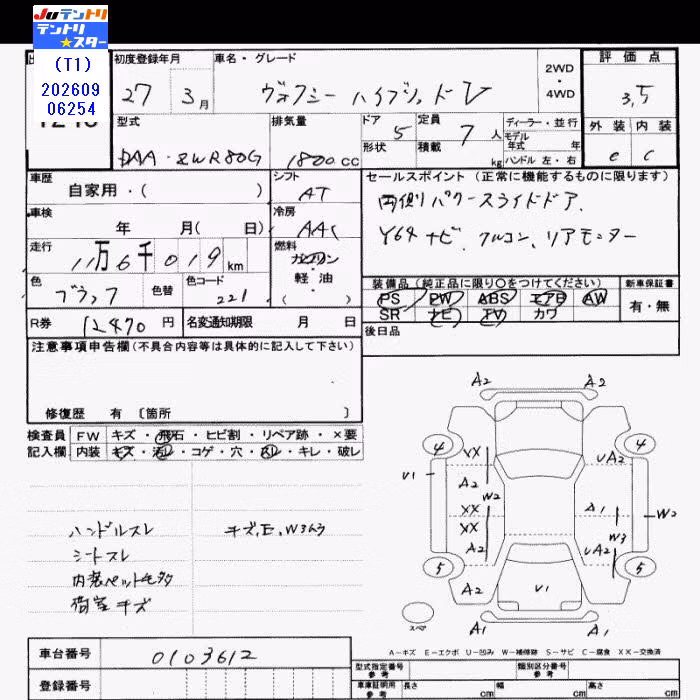 Juテントリ
テントリ
★スター
(T1)
202609
06254
初度登録年月
27 3月
車名・グレード
ヴォクシー ハイブリッド V
2WD
・
4WD
評価点
3,5
外装 内装
e C
型式
DAA-ZWR80G
排気量
1800cc
ドア 5
形状
定員 7人
積載 kg
ディーラー・並行
モデル
年式 年
ハンドル 左・右
車歴
自家用・( )
シフト
AT
セールスポイント(正常に機能するものに限ります)
両側パワースライドドア.
Y64 ナビ. フルコン. リアモニター
車検
年 月( 日)
冷房
AAC
走行
11万6千019km
燃料
ガソリン
・
軽油
( )
色
ブラック
色替
色コード
221
装備品(純正品に限り〇をつけてください)
PS PW ABS エアB AW
SR ナビ TV カワ
新車保証書
有・無
R券 12470円
名変通知期限 月 日
後日品
注意事項申告欄(不具合内容等は具体的に記入して下さい)
修復歴 有〔箇所 〕
検査員
記入欄
FW キズ・飛石・ヒビ割・リペア跡・×要
内装 キズ・汚レ・コゲ・穴・スレ・キレ・破レ
ハンドルスレ
シートスレ
内装ペットモ多
荷室キズ
キズ,E,W363
A2 A2
4 4
XX UA2
V1
A2 W2
XX A1
W2
XX W3
A2 UA2
5 5
A2 V1
スペア
A1 A1
A-キズ E-エクボ U-凹み W-補修跡 S-サビ C-腐食 XX-交換済
車台番号 0103612
登録番号
型式指定番号
参考
類別区分番号
参考
車庫証明用
参考
長さ cm
幅 cm
高さ cm